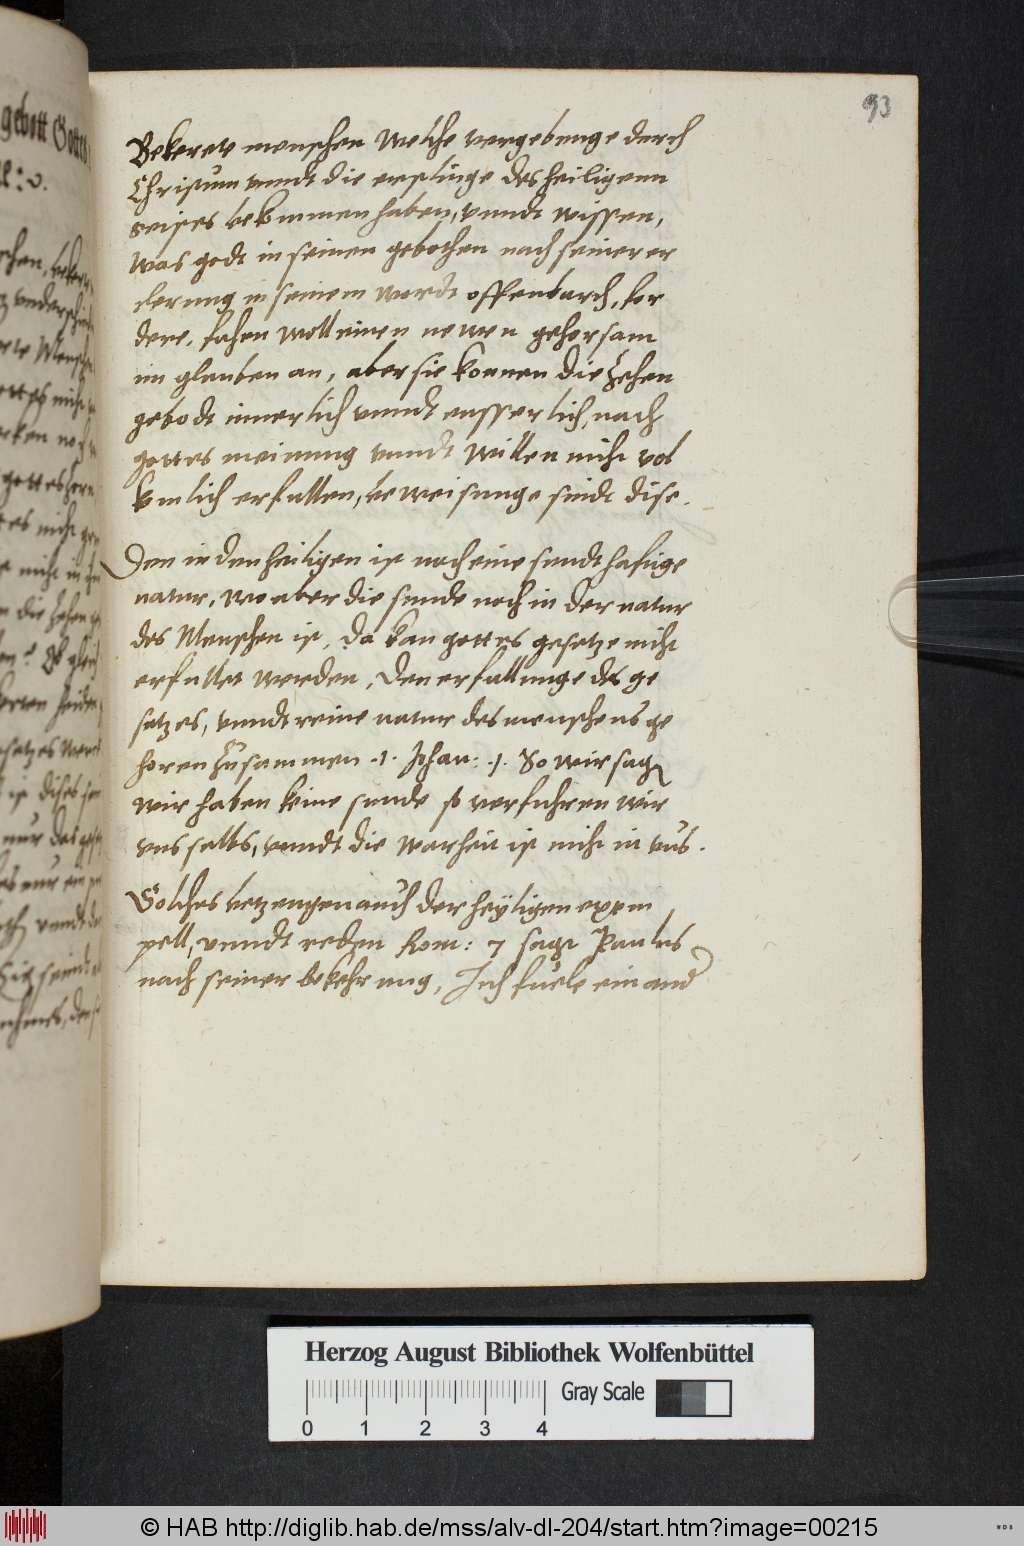 93
Bekerete menschen Welche vergebunge durch
Christum vnndt die erstlinge des heiligenn
geistes bekummen haben, vnndt wissen,
Was godt in seinen gebothen nach seiner er
clerung in seinem wordt offenbarch, for
dere, fahen woll einen newen gehorsam
im glauben an, aber sie konnen die zehen
gebodt innerlich vnndt eusserlich, nach
gottes meinung vnndt willen nicht vol
kumlich erfullen, beweisunge sindt dise.
Den in den heiligen ist noch eine sundthafftige
natur, wo aber die sunde noch in der natur
des Menschen ist, da kan gottes gesetze nicht
erfullet werden, Den erfullunge des ge
setzes, vnndt reine natur des menschens ge
horen zusammen .1. Johan: .1. So wir sag
wir haben keine sunde so verfuhren wir
vns selbs, vnndt die warheit ist nicht in vns.
Solches betzeugen auch der heyligen exem
pell, vnndt reden Rom: 7 sagt Paulus
nach seiner bekehrung, Ich fuele ein and
gebott Gottes
Herzog August Bibliothek Wolfenbüttel
Gray Scale
0 1 2 3 4
© HAB http://diglib.hab.de/mss/alv-dl-204/start.htm?image=00215